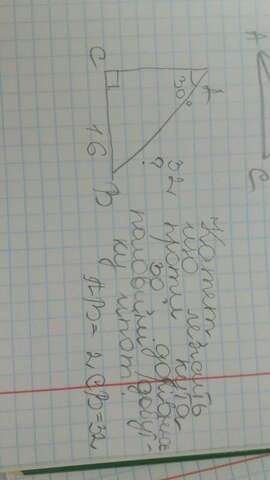 A
C
A
30°
C
16
B
?
32
Катет
що лежить
проти кута
30° дорівнює
половині
гіпот.
AB = 2CB=32